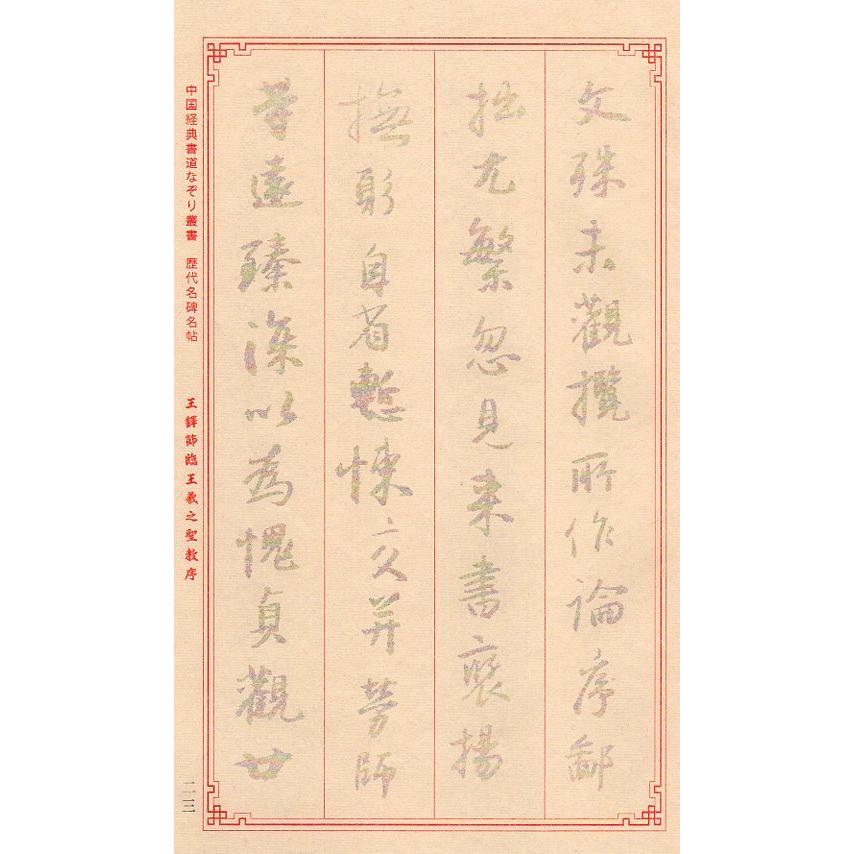 文殊未觀攬所作論序鄙
拙尤繁忽見来書褒揚
撫躬自省慙悚交并勞師
等遠臻深以為愧貞觀廿
中国経典書道なぞり叢書　歴代名碑名帖　王鐸節臨王羲之聖教序
二三